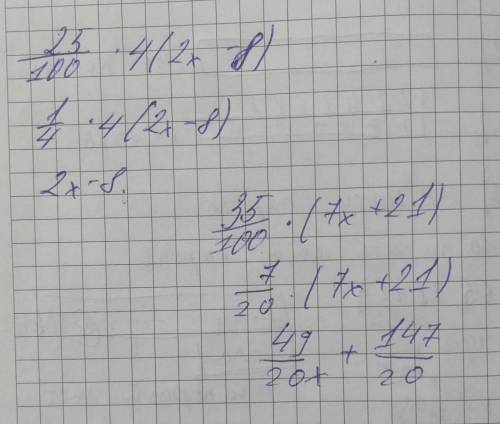 25/100 · 4(2x - 8)
1/4 · 4(2x - 8)
2x - 8.
35/100 · (7x + 21)
7/20 · (7x + 21)
49/20x + 147/20